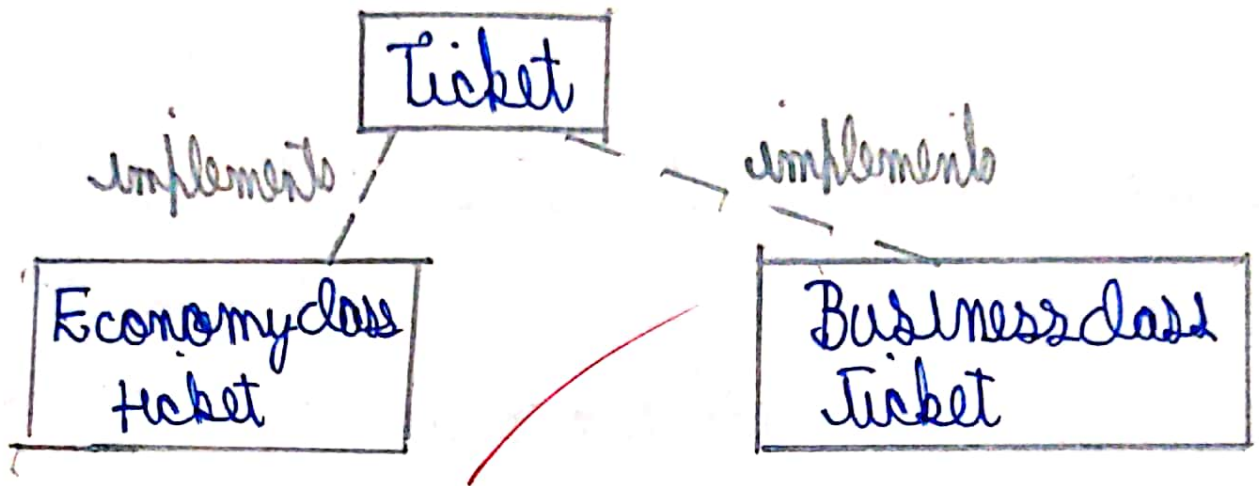 Ticket
implements
implements
Economyclass
ticket
Businessclass
Ticket